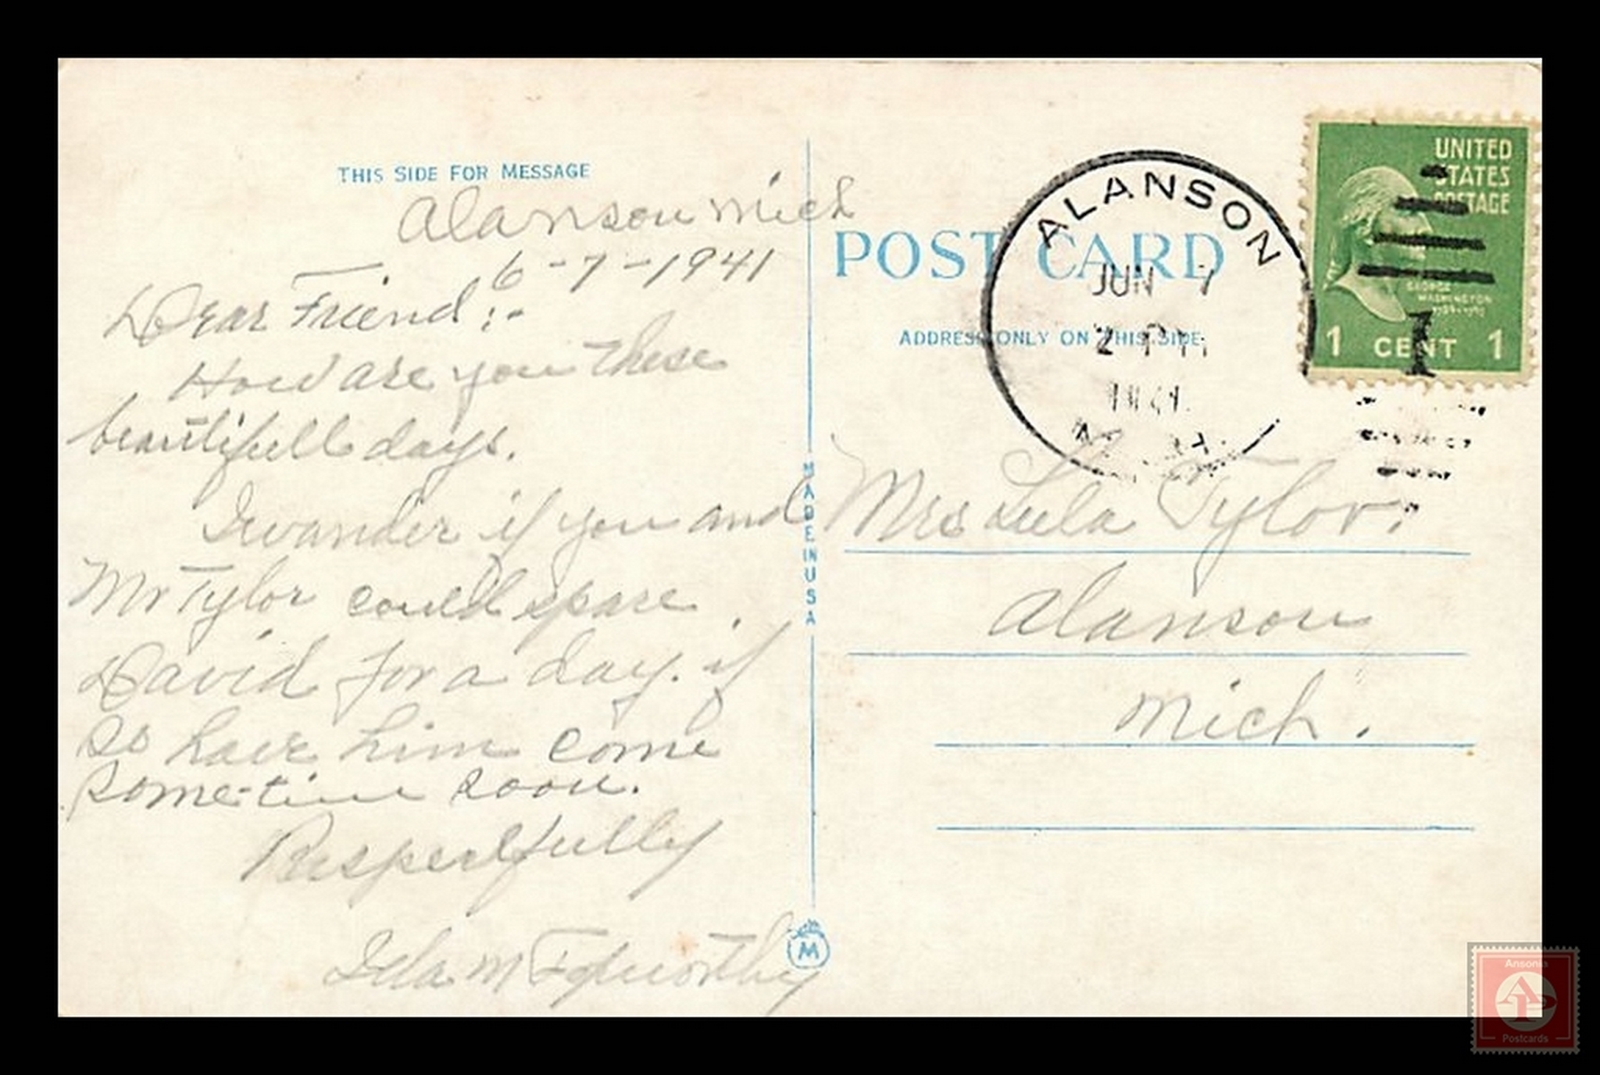 THIS SIDE FOR MESSAGE
Alanson Mich
6-7-1941
Dear Friend:-
How are you these
beautifull days.
I wander if you and
Mr Tylor could spare
David for a day. if
so have him come
sometime soon.
Respectfully
Ida M
POST CARD
ADDRESS ONLY ON THIS SIDE
MADE IN USA
M
ALANSON
JUN 7
2 PM
1941
UNITED
STATES
POSTAGE
GEORGE
WASHINGTON
1 CENT 1
1
Mrs Lula Tylor.
Alanson
Mich.
Ansonia
AP
Postcards